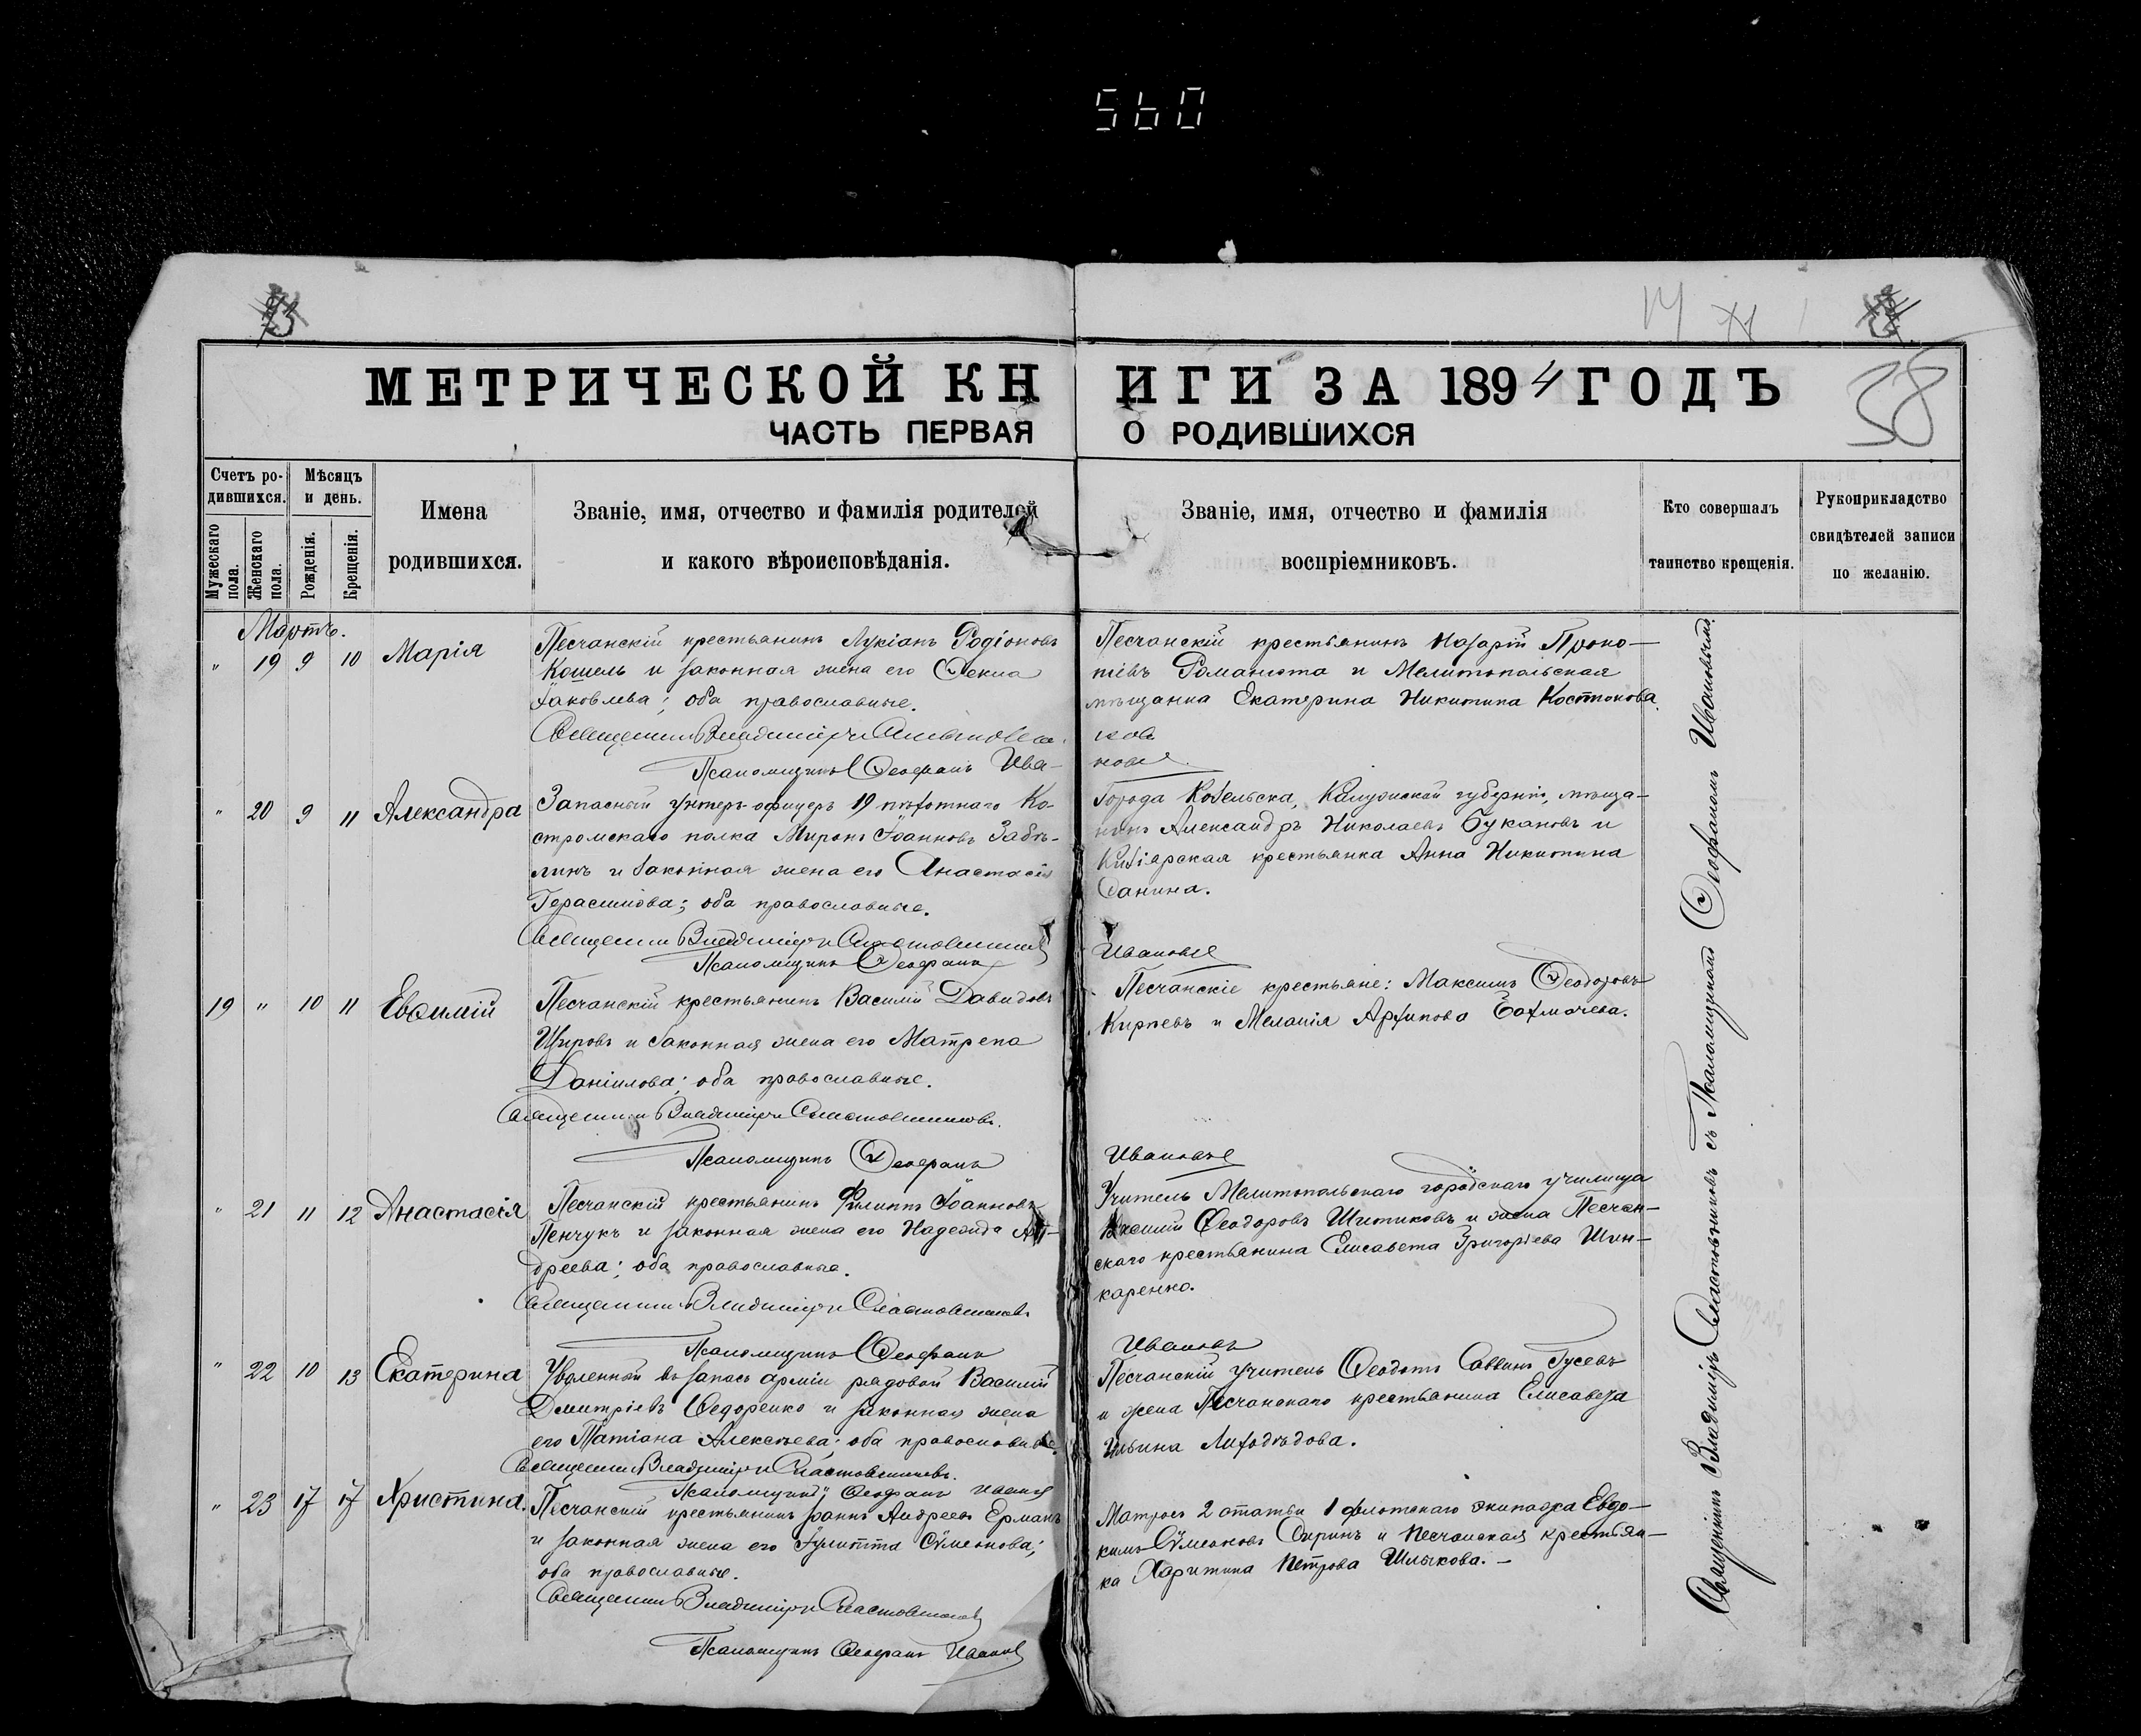 560
73
МЕТРИЧЕСКОЙ КНИГИ ЗА 1894 ГОДЪ
38
ЧАСТЬ ПЕРВАЯ О РОДИВШИХСЯ
Счетъ родившихся.
Мужескаго пола.
Женскаго пола.
Мѣсяцъ и день.
Рожденія.
Крещенія.
Имена
родившихся.
Званіе, имя, отчество и фамилія родителей
и какого вѣроисповѣданія.
Званіе, имя, отчество и фамилія
воспріемниковъ.
Кто совершалъ
таинство крещенія.
Рукоприкладство
свидѣтелей записи
по желанію.
Мартъ.
" 19 9 10 Марія
Песчанскій крестьянинъ Лукіанъ Родіоновъ
Кошель и законная жена его Ѳекла
Іаковлева; оба православные.
Священникъ Владиміръ
Псаломщикъ Ѳеофанъ Ива-
Песчанскій крестьянинъ Назарій Проко-
піевъ Романюта и Мелитопольская
мѣщанка Екатерина Никитина
новъ
" 20 9 11 Александра
Запасный унтеръ-офицеръ 19 пѣхотнаго Ко-
стромскаго полка Миронъ Іоанновъ Забѣ-
линъ и законная жена его Анастасія
Герасимова; оба православные.
Священникъ Владиміръ Сластовниковъ
Псаломщикъ Ѳеофанъ
Города Козельска, Калужской губерніи, мѣща-
нинъ Александръ Николаевъ Букановъ и
крестьянка Анна Никитина
Санина.
Ивановъ
19 " 10 11 Евѳимій
Песчанскій крестьянинъ Василій Давидовъ
Щировъ и законная жена его Матрена
Даніилова; оба православные.
Священникъ Владиміръ Сластовниковъ.
Псаломщикъ Ѳеофанъ
Песчанскіе крестьяне: Максимъ Ѳеодоровъ
и Меланія Архипова Бахмачева.
Ивановъ
" 21 11 12 Анастасія
Песчанскій крестьянинъ Филиппъ Іоанновъ
Пенчукъ и законная жена его Надежда Ан-
дреева; оба православные.
Священникъ Владиміръ Сластовниковъ
Псаломщикъ Ѳеофанъ
Учитель Мелитопольскаго городскаго училища
Василій Ѳеодоровъ Шитиковъ и жена Песчан-
скаго крестьянина Елисавета Григорьева Шин-
каренко.
Ивановъ
" 22 10 13 Екатерина
Уволенный въ запасъ арміи рядовой Василій
Димитріевъ Ѳедоренко и законная жена
его Татіана Алексѣева; оба православные.
Священникъ Владиміръ Сластовниковъ.
Псаломщикъ Ѳеофанъ Ивановъ
Песчанскій учитель Ѳеодотъ Саввинъ Гусевъ
и жена Песчанскаго крестьянина Елисавета
Ильина Лиходѣдова.
" 23 17 17 Христина.
Песчанскій крестьянинъ Іоаннъ Андреевъ Ерманъ
и законная жена его Іулитта Сѵмеонова;
оба православные.
Священникъ Владиміръ Сластовниковъ
Псаломщикъ Ѳеофанъ Ивановъ
Матросъ 2 статьи 1 флотскаго экипажа Евдо-
кимъ Сѵмеоновъ Сиринъ и Песчанская крестьян-
ка Харитина Петрова Шлыкова.
Священникъ Владиміръ Сластовниковъ съ Псаломщикомъ Ѳеофаномъ Ивановымъ.